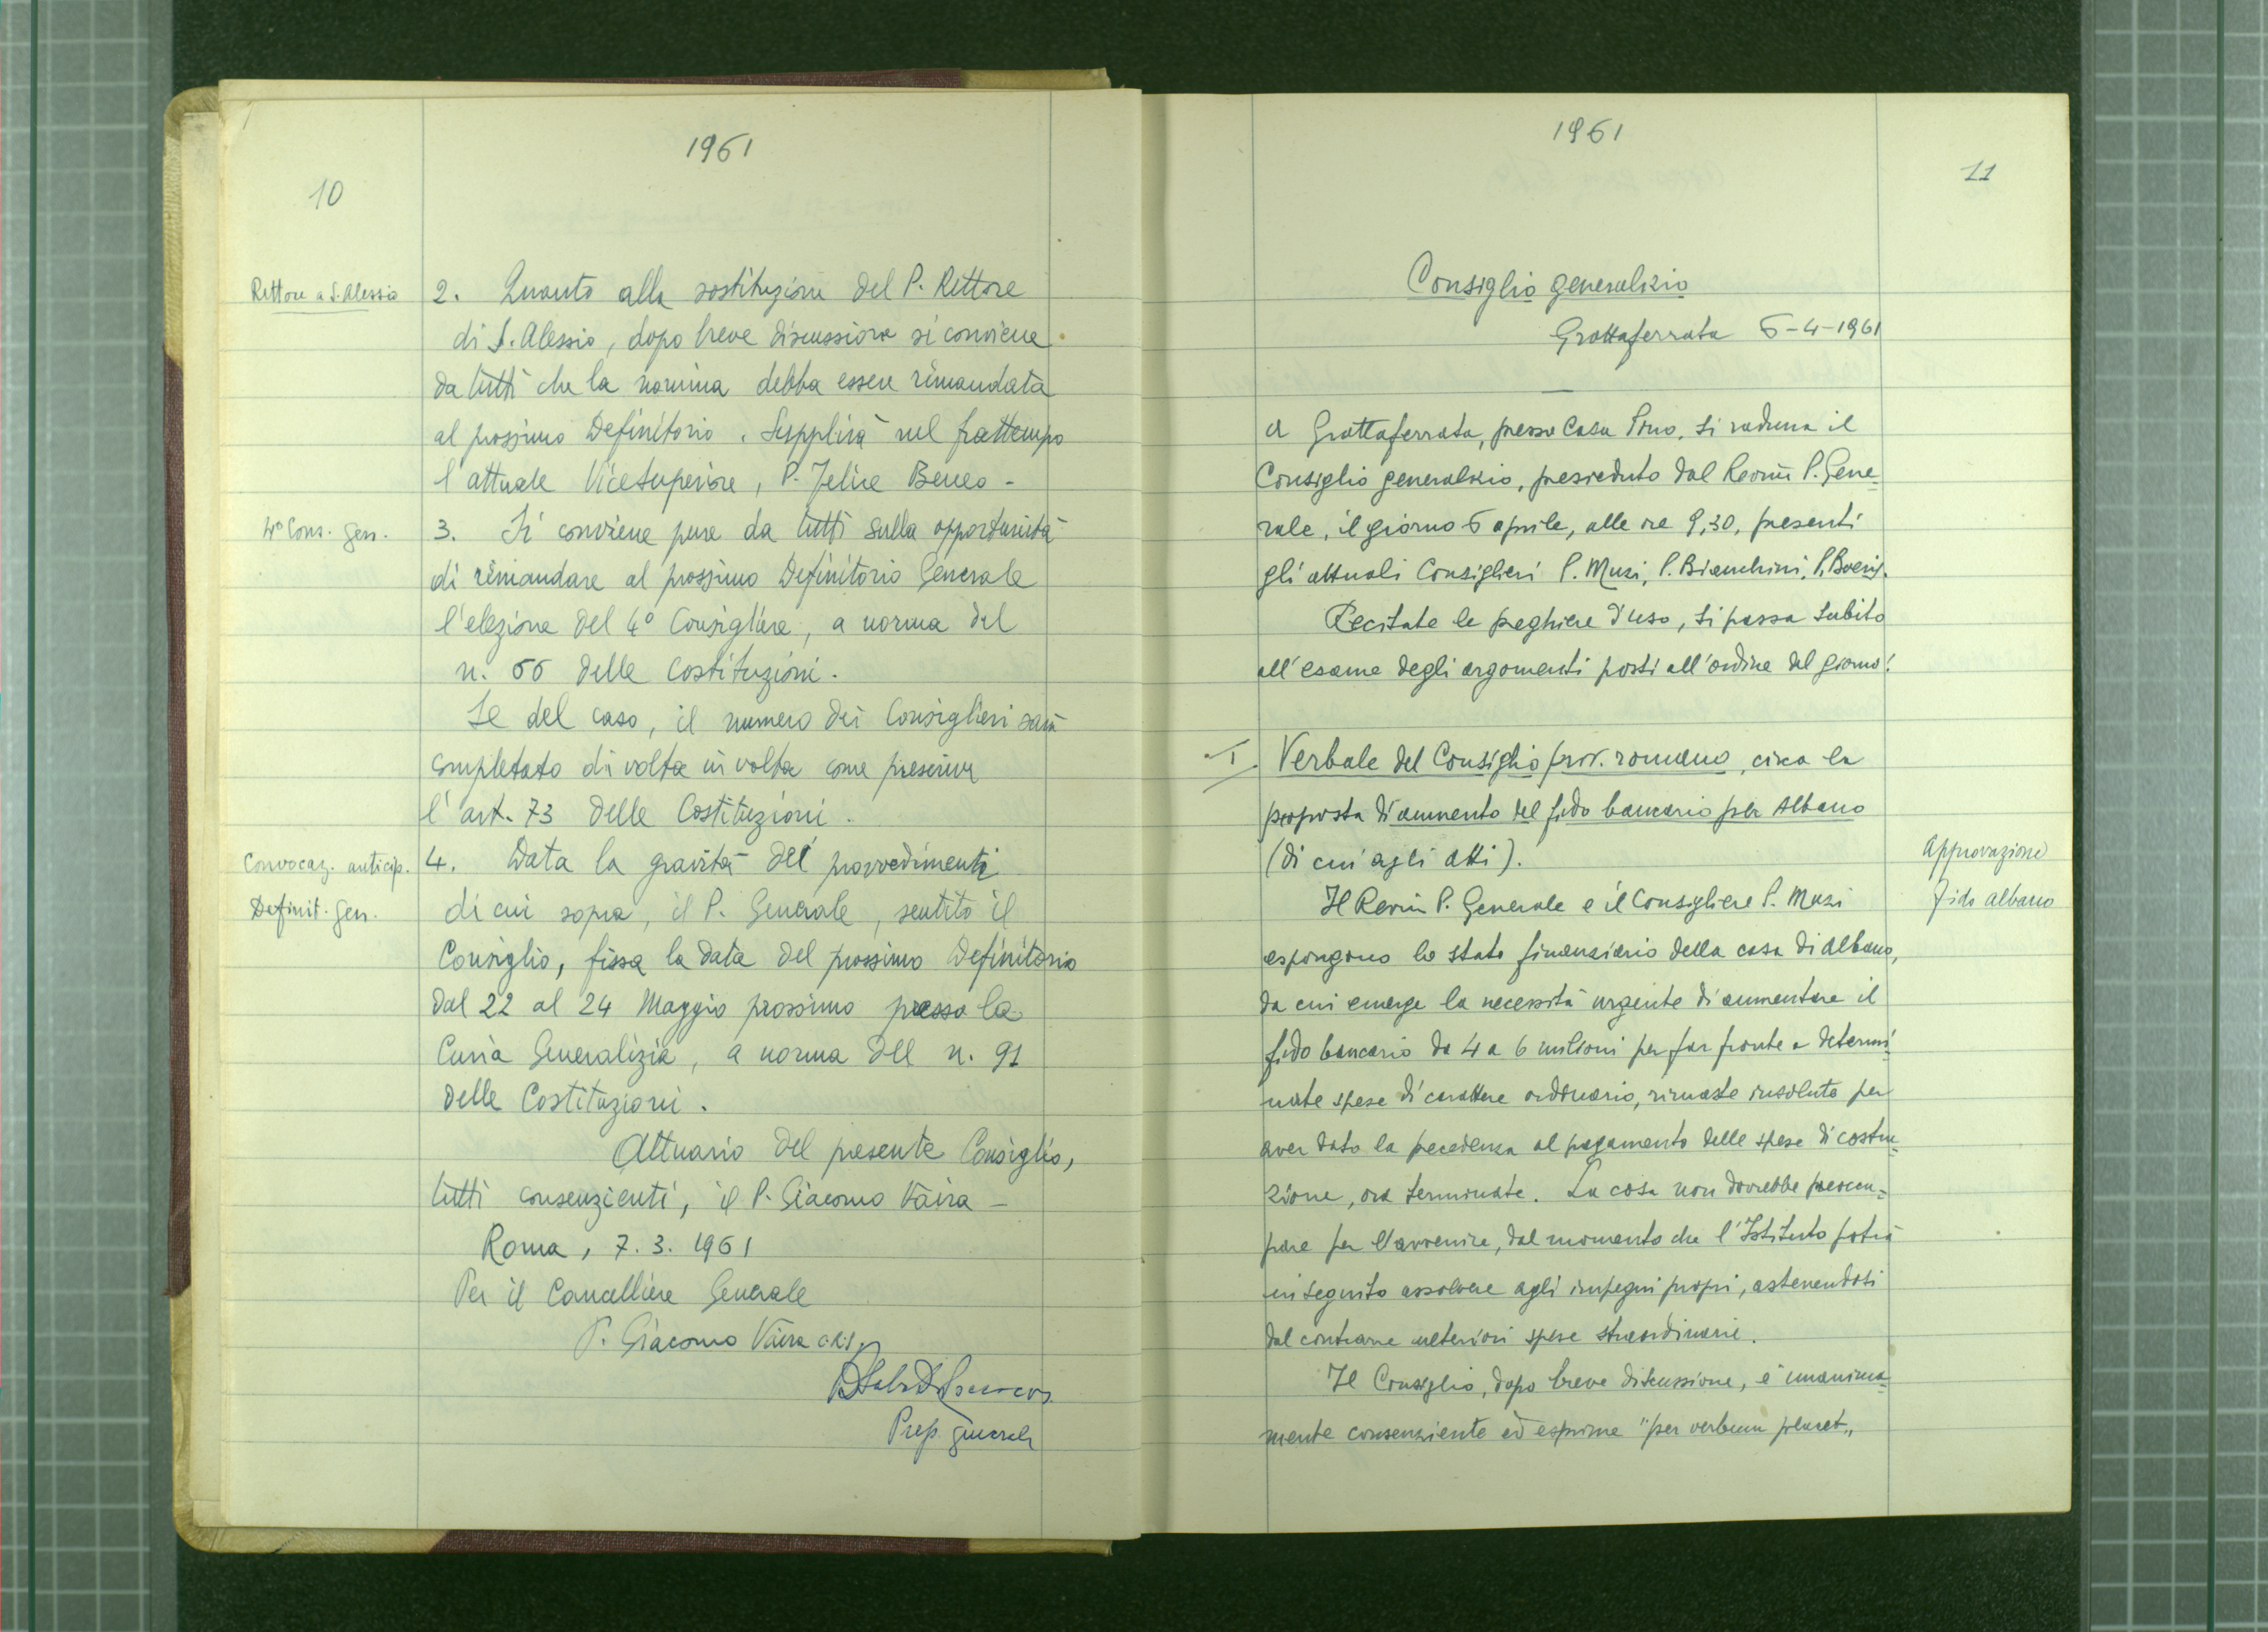 1961
10
Rettore a S. Alessio
2. Quanto alla sostituzione del P. Rettore
di S. Alessio, dopo breve discussione si conviene
da tutti che la nomina debba essere rimandata
al prossimo Definitorio. Supplirà nel frattempo
l'attuale Vicesuperiore, P. Felice Beneo -
4° Cons. gen.
3. Si conviene pure da tutti sulla opportunità
di rimandare al prossimo Definitorio Generale
l'elezione del 4° Consigliere, a norma del
n. 66 delle Costituzioni.
Se del caso, il numero dei Consiglieri sarà
completato di volta in volta come prescrive
l'art. 73 delle Costituzioni.
Convocaz. anticip.
Definit. gen.
4. Data la gravità dei provvedimenti
di cui sopra, il P. Generale, sentito il
Consiglio, fissa la data del prossimo Definitorio
dal 22 al 24 Maggio prossimo presso la
Curia Generalizia, a norma del n. 91
delle Costituzioni.
Attuario del presente Consiglio,
tutti consenzienti, il P. Giacomo Vaira -
Roma, 7. 3. 1961
Per il Cancelliere Generale
P. Giacomo Vaira crs.
Prep. generale
1961
11
Consiglio generalizio
Grottaferrata 6-4-1961
A Grottaferrata, presso Casa Pino, si raduna il
Consiglio generalizio, presieduto dal Revm̃ P. Gene=
rale, il giorno 6 aprile, alle ore 9,30, presenti
gli attuali Consiglieri P. Muzi, P. Bianchini, P. Boeris.
Recitate le preghiere d'uso, si passa subito
all'esame degli argomenti posti all'ordine del giorno:
I. Verbale del Consiglio prov. romano, circa la
proposta di aumento del fido bancario per Albano
(di cui agli atti).
Approvazione
fido Albano
Il Revm̃ P. Generale e il Consigliere P. Muzi
espongono lo stato finanziario della casa di Albano,
da cui emerge la necessità urgente di aumentare il
fido bancario da 4 a 6 milioni per far fronte a determi=
nate spese di carattere ordinario, rimaste insolute per
aver dato la precedenza al pagamento delle spese di costru=
zione, ora terminate. La cosa non dovrebbe preoccu=
pare per l'avvenire, dal momento che l'Istituto potrà
in seguito assolvere agli impegni propri, astenendosi
dal contrarre ulteriori spese straordinarie.
Il Consiglio, dopo breve discussione, è unanima=
mente consenziente ed esprime "per verbum placet„